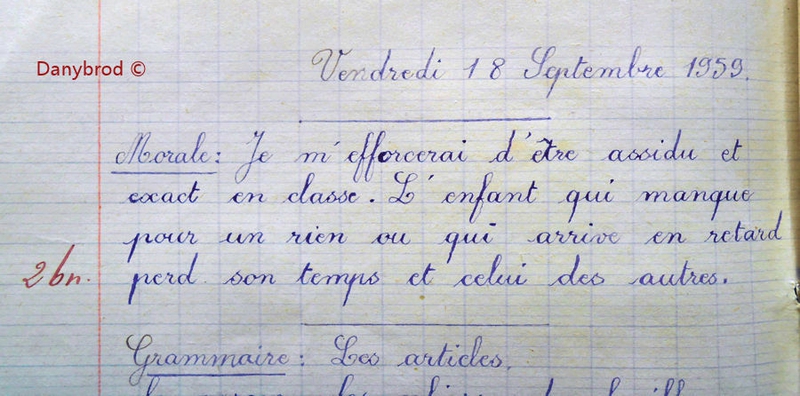 Danybrod ©
Vendredi 18 Septembre 1959.
Morale: Je m'efforcerai d'être assidu et
exact en classe. L'enfant qui manque
pour un rien ou qui arrive en retard
2 bn. perd son temps et celui des autres.
Grammaire: Les articles.